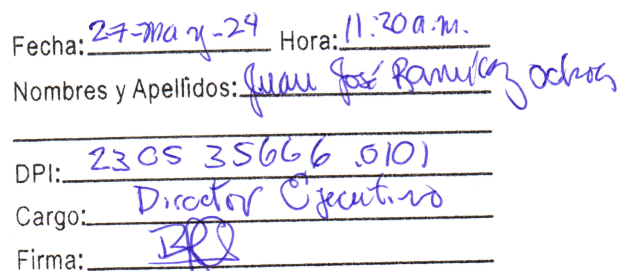 Fecha: 27-May-24 Hora: 11:20 a.m.
Nombres y Apellidos: Juan José Ramírez Ochoa
DPI: 2305 35666 .0101
Cargo: Director Ejecutivo
Firma: